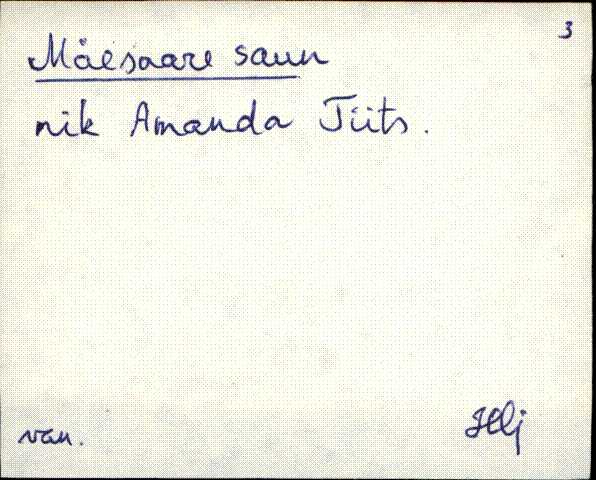 3
Mäesaare saun
nik Amanda Tiits.
van. Hlj